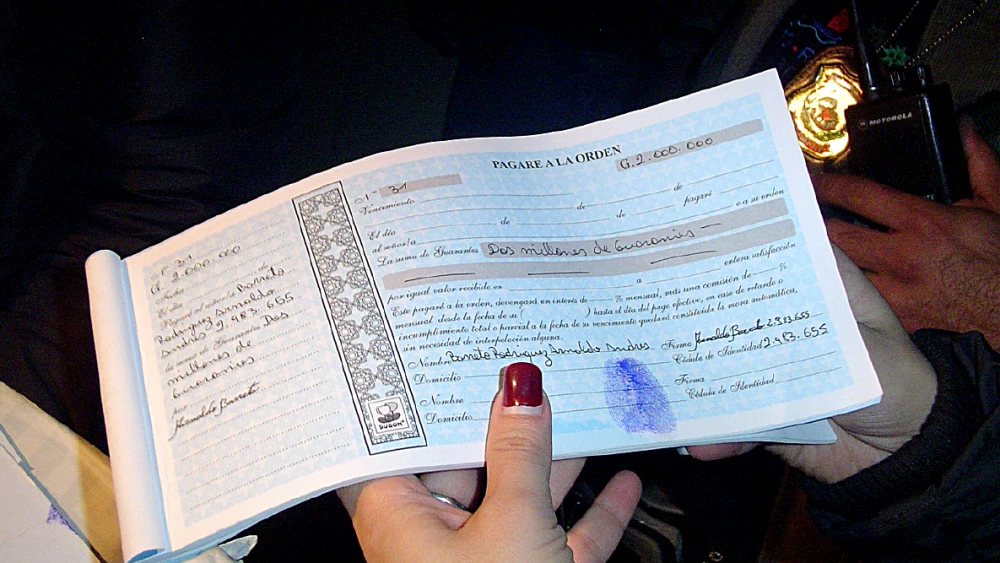 Nº 31
G. 2.000.000
de
Barreto
Rodriguez Arnoldo
Andrés 2.983.655
la suma de Guaraníes Dos
millones de
Guaranies
PAGARE A LA ORDEN
G. 2.000.000
Nº 31
Vencimiento de de
El día de de pagaré
al señor/a o a su orden
La suma de Guaraníes Dos millones de Guaranies
por igual valor recibido en a entera satisfacción
Este pagaré a la orden, devengará un interés de % mensual, más una comisión de %
mensual desde la fecha de su ( ) hasta el día del pago efectivo, en caso de retardo o
incumplimiento total o parcial a la fecha de su vencimiento quedará constituida la mora automática,
sin necesidad de interpelación alguna.
Nombre Barreto Rodriguez Arnoldo Andres Firma 2.983.655
Domicilio Cédula de Identidad 2.983.655
Nombre Firma
Domicilio Cédula de Identidad
DUGOM
MOTOROLA